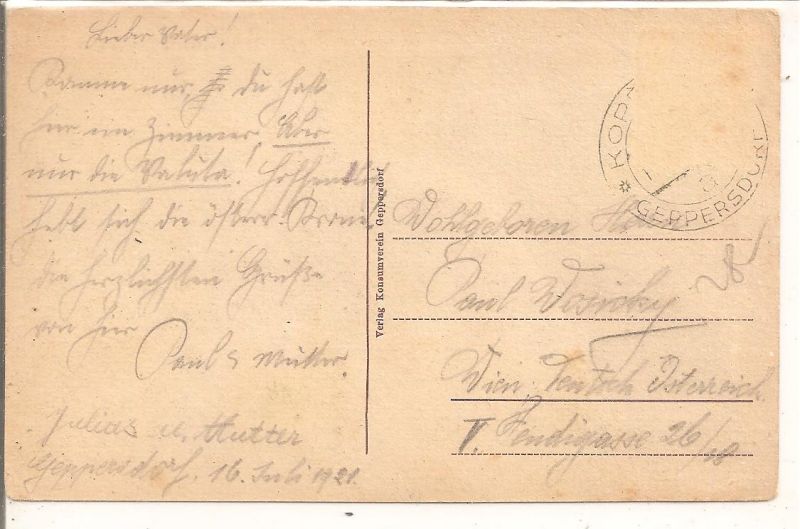 Lieber Vater!
Komme nur, du hast
hier ein Zimmer, Aber
nur die Valuta! Hoffentlich
hebt sich die österr. Krone!
die herzlichsten Grüße
von hier
Paul & Mutter.
Julius u. Mutter
Geppersdorf, 16. Juli 1921.
Verlag Konsumverein Geppersdorf
* KOP
GEPPERSDORF
Wohlgeboren Herrn
Paul
Wien Deutsch Österreich
V. Fendigasse 26/18
28